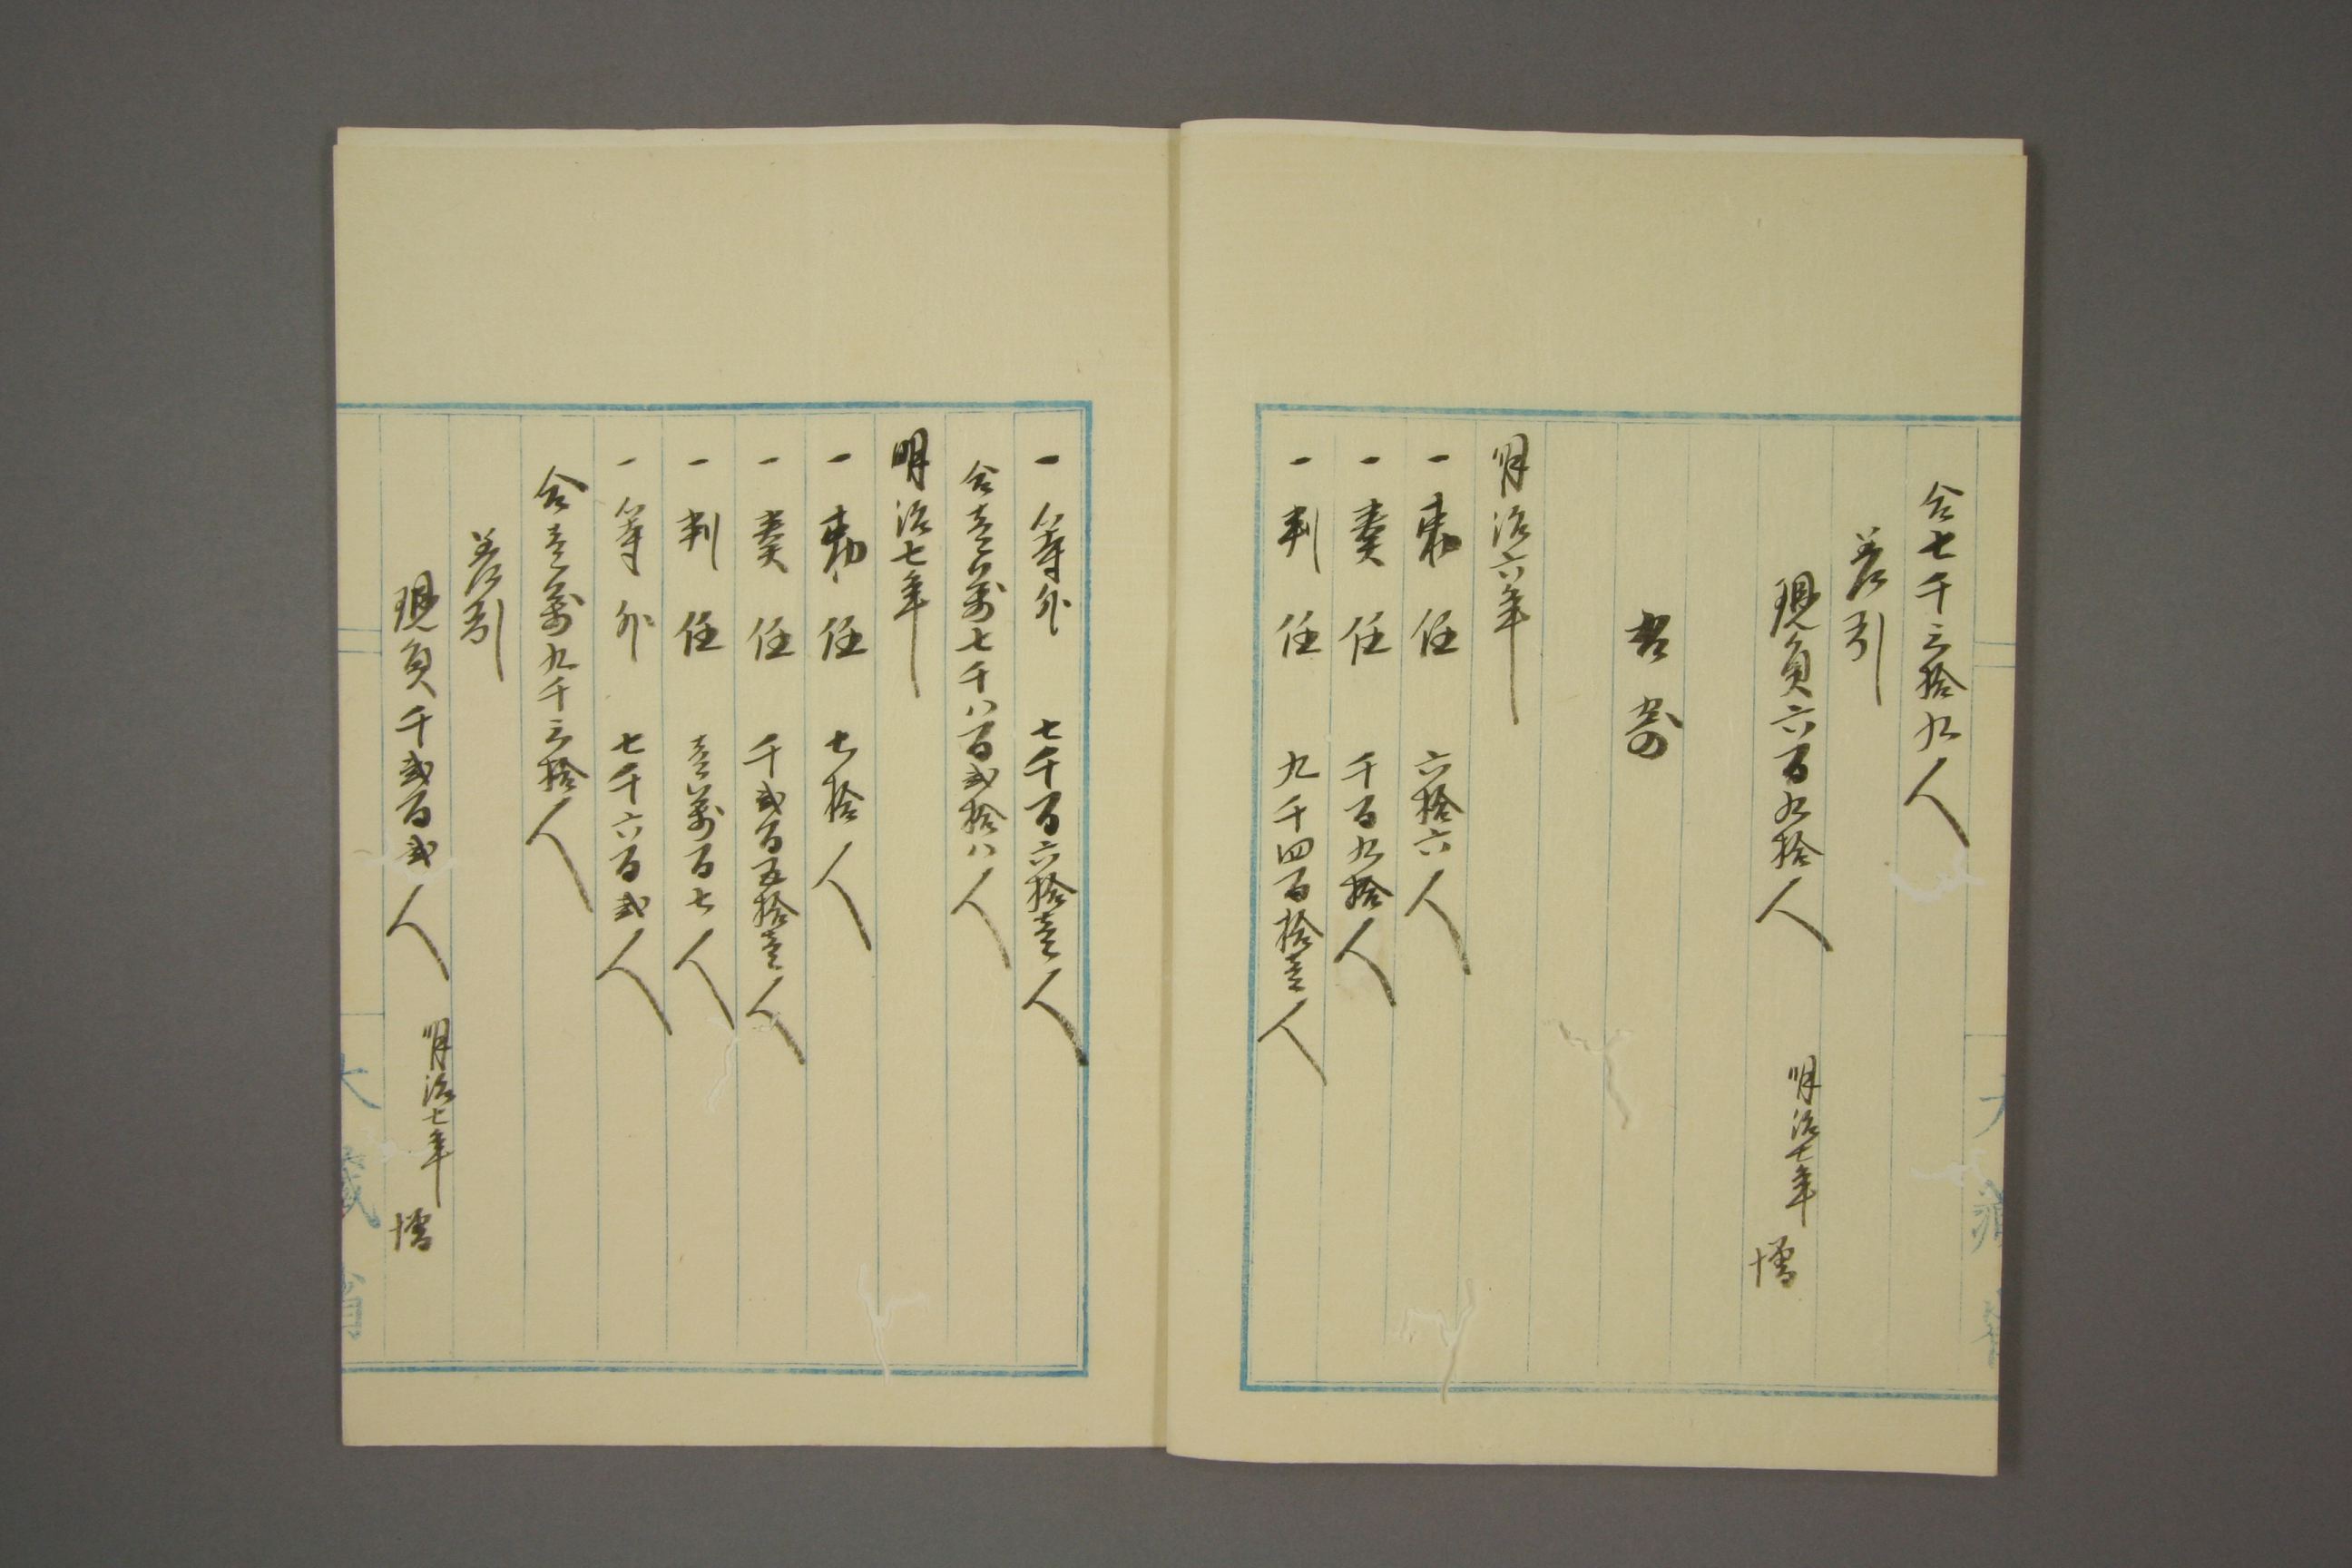 合七千三拾九人
差引
現員六百九拾人　明治七年　増
寄
明治六年
一勅任　六拾六人
一奏任　千百九拾人
一判任　九千四百拾壹人
一等外　七千百六拾壹人
合壹萬七千八百弐拾八人
明治七年
一勅任　七拾人
一奏任　千弐百五拾壹人
一判任　壹萬百七人
一等外　七千六百弐人
合壹萬九千三拾人
差引
現員千弐百弐人　明治七年　増
大藏省